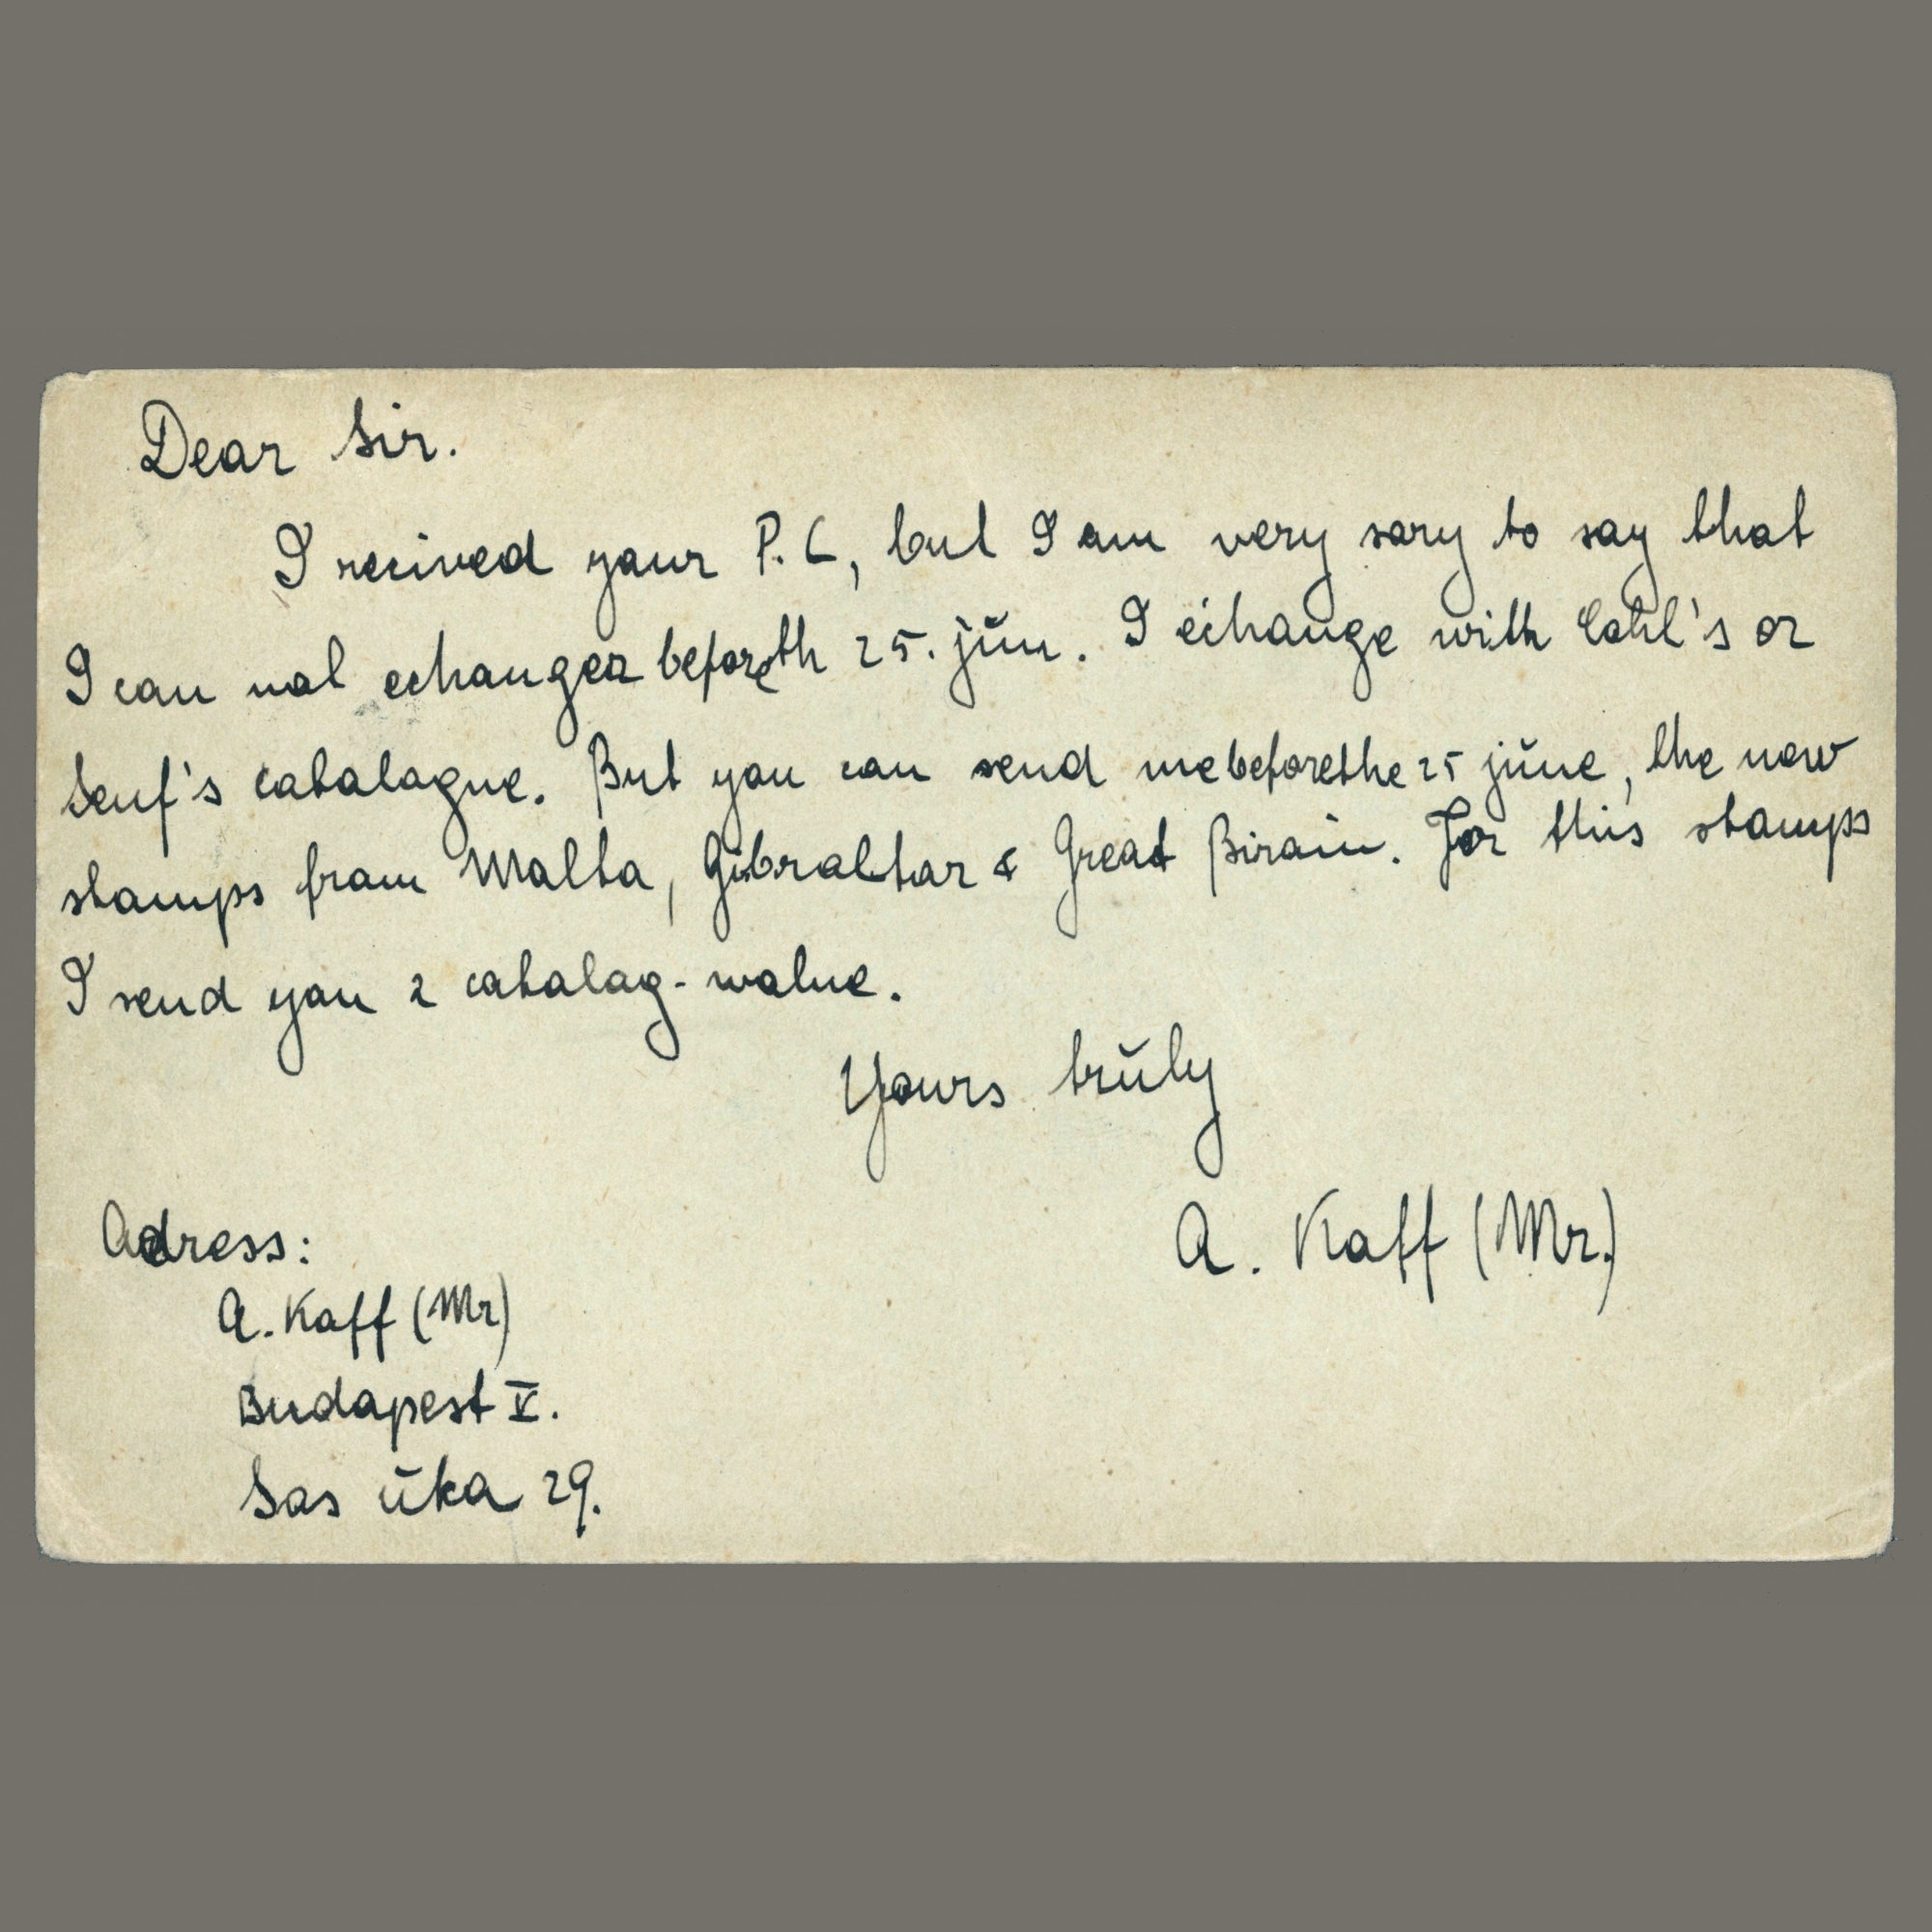 Dear Sir.
I recived your P.C, but I am very sory to say that
I can not echanger before th 25. jún. I echange with Cohl's or
Senf's catalogue. But you can send me before the 25 júne, the new
stamps from Malta, Gibralthar & Great Birain. For this stamps
I send you 2 catalog-walue.
Yours trúly
A. Kaff (Mr.)
Adress:
A. Kaff (Mr)
Budapest V.
Sas útka 29.